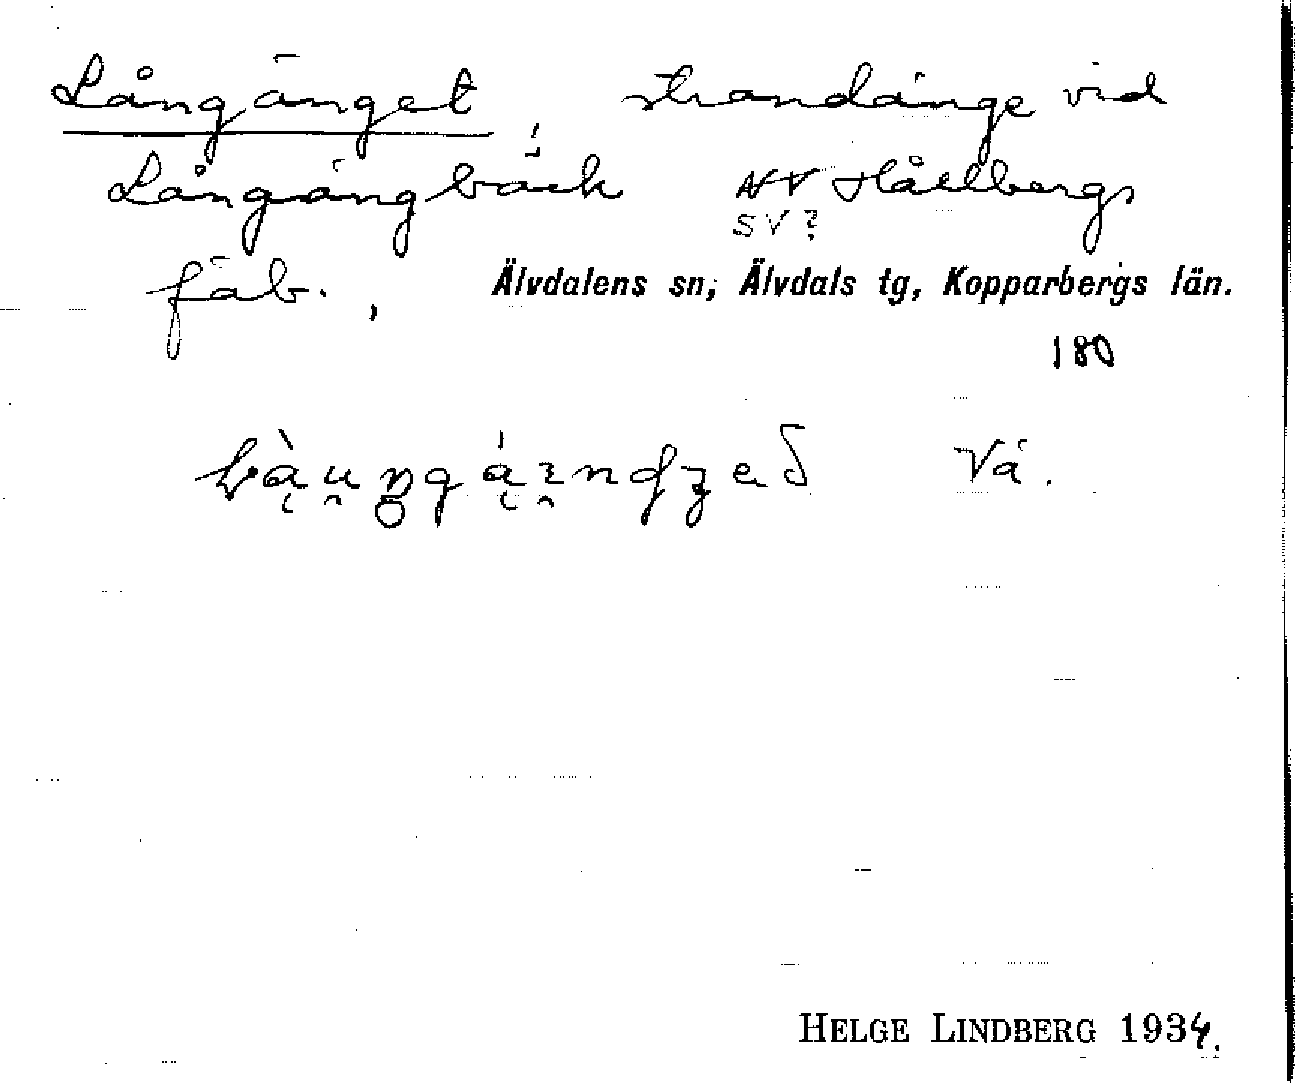 Långänget, strandänge vid
Långängbäck NV Hållbergs
SV?
fäb., Älvdalens sn, Älvdals tg, Kopparbergs län.
180
Vå.
HELGE LINDBERG 1934.